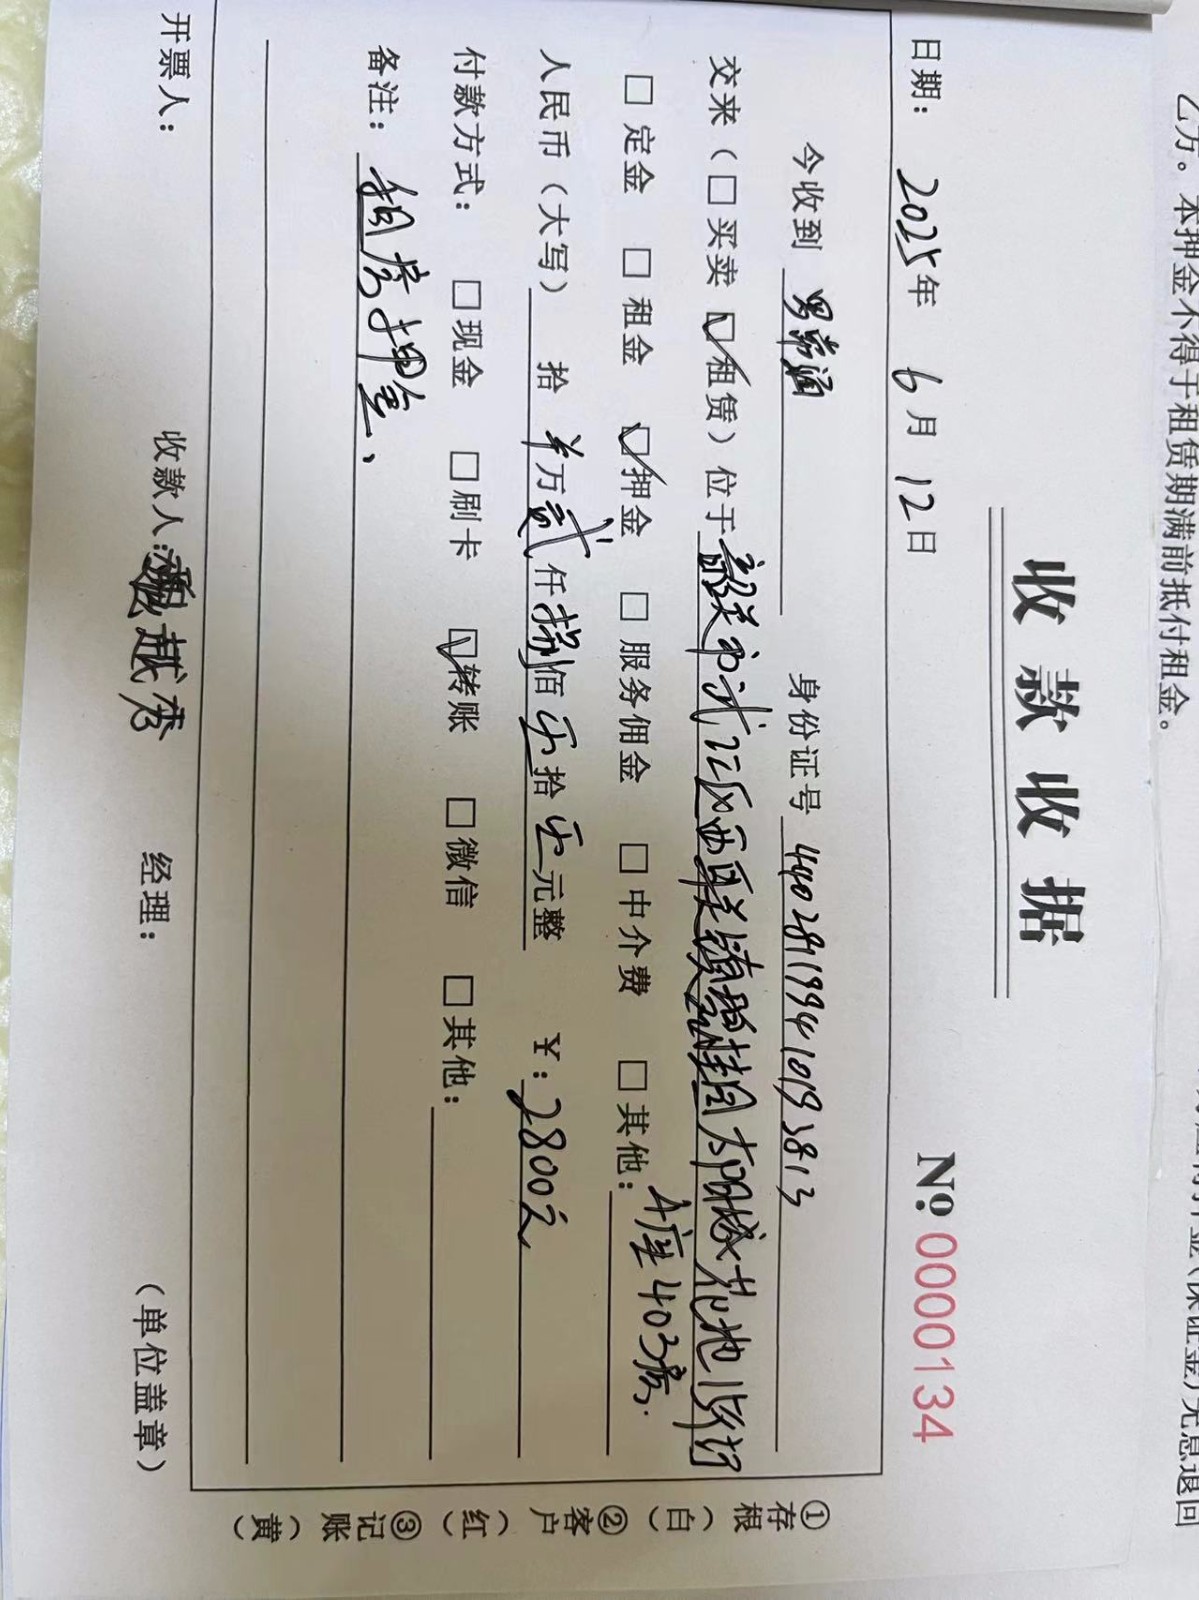 乙方。本押金不得于租赁期满前抵付租金。
收款收据
№ 0000134
日期： 2025年 6月 12日
今收到 身份证号 440281199410193813
交来（□买卖 ☑租赁）位于韶关市武江区西联镇碧桂园太阳城花地
A座403房.
□定金 □租金 ☑押金 □服务佣金 □中介费 □其他：
人民币（大写） 拾 万贰仟捌佰零拾零元整 ¥：2800元
付款方式： □现金 □刷卡 ☑转账 □微信 □其他：
备注： 租房押金、
开票人： 收款人： 越秀 经理： （单位盖章）
①存根（白） ②客户（红） ③记账（黄）